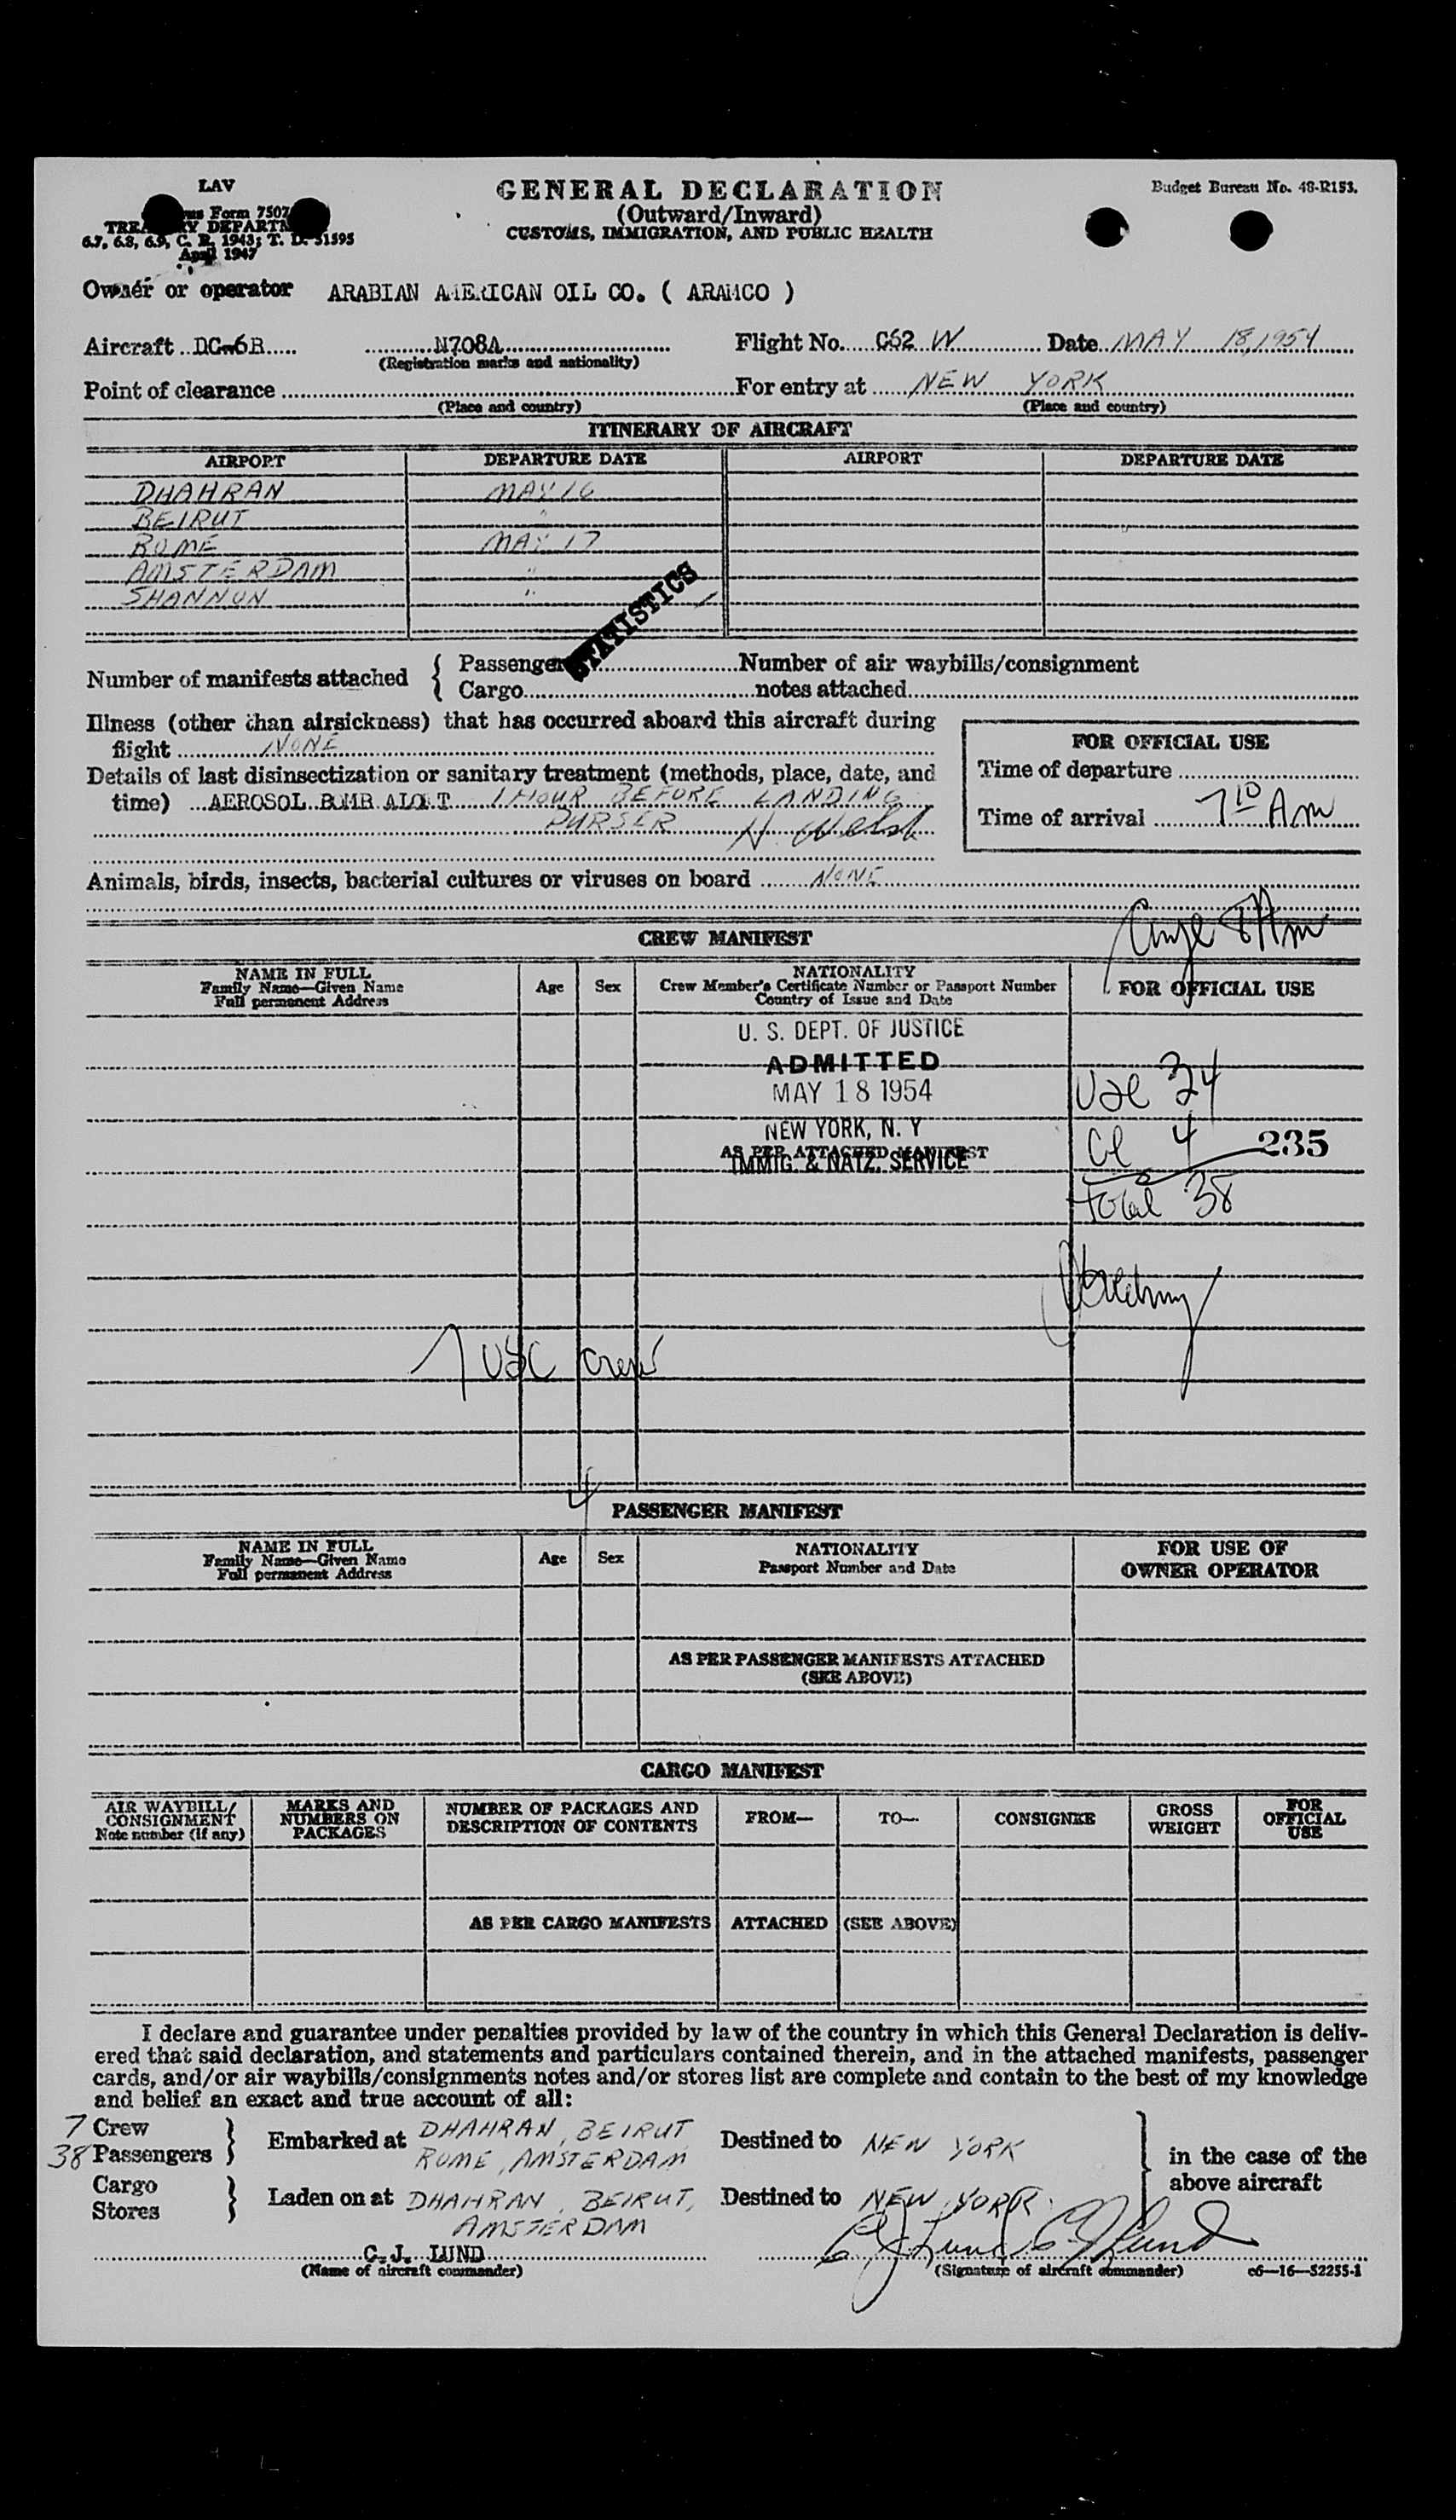 LAV
GENERAL DECLARATION
Budget Bureau No. 48-R153.
(Outward/Inward)
CUSTOMS, IMMIGRATION, AND PUBLIC HEALTH
Form 7507
TREASURY DEPARTM
6.7, 6.8, 6.9, C. R. 1943; T. D. 51595
April 1947
Owner or operator ARABIAN AMERICAN OIL CO. ( ARAMCO )
Aircraft DC-6B N708A Flight No. C52 W Date MAY 18, 1954
(Registration marks and nationality)
Point of clearance For entry at NEW YORK
(Place and country) (Place and country)
ITINERARY OF AIRCRAFT
AIRPORT DEPARTURE DATE AIRPORT DEPARTURE DATE
DHAHRAN MAY 16
BEIRUT "
ROME MAY 17
AMSTERDAM "
SHANNON "
STATISTICS
Number of manifests attached { Passenger Number of air waybills/consignment
Cargo notes attached
Illness (other than airsickness) that has occurred aboard this aircraft during
flight NONE
FOR OFFICIAL USE
Time of departure
Time of arrival 7 10 Am
Details of last disinsectization or sanitary treatment (methods, place, date, and
time) AEROSOL BOMB 1 HOUR BEFORE LANDING
PURSER H. Welsh
Animals, birds, insects, bacterial cultures or viruses on board NONE
CREW MANIFEST
NAME IN FULL
Family Name—Given Name
Full permanent Address
Age Sex
NATIONALITY
Crew Member's Certificate Number or Passport Number
Country of Issue and Date
FOR OFFICIAL USE
U. S. DEPT. OF JUSTICE
ADMITTED
MAY 18 1954
NEW YORK, N. Y
AS PER ATTACHED MANIFEST
IMMIG. & NATZ. SERVICE
USC 34
4
235
total 38
7 USC crew
4
PASSENGER MANIFEST
NAME IN FULL
Family Name—Given Name
Full permanent Address
Age Sex
NATIONALITY
Passport Number and Date
FOR USE OF
OWNER OPERATOR
AS PER PASSENGER MANIFESTS ATTACHED
(SEE ABOVE)
CARGO MANIFEST
AIR WAYBILL/
CONSIGNMENT
Note number (if any)
MARKS AND
NUMBERS ON
PACKAGES
NUMBER OF PACKAGES AND
DESCRIPTION OF CONTENTS
FROM—
TO—
CONSIGNEE
GROSS
WEIGHT
FOR
OFFICIAL
USE
AS PER CARGO MANIFESTS ATTACHED (SEE ABOVE)
I declare and guarantee under penalties provided by law of the country in which this General Declaration is deliv-
ered that said declaration, and statements and particulars contained therein, and in the attached manifests, passenger
cards, and/or air waybills/consignments notes and/or stores list are complete and contain to the best of my knowledge
and belief an exact and true account of all:
7 Crew
38 Passengers } Embarked at DHAHRAN, BEIRUT
ROME, AMSTERDAM
Destined to NEW YORK
in the case of the
above aircraft
Cargo
Stores } Laden on at DHAHRAN, BEIRUT,
AMSTERDAM
Destined to NEW YORK
C. J. LUND C J Lund C J Lund
(Name of aircraft commander) (Signature of aircraft commander) c6—16—52255-1